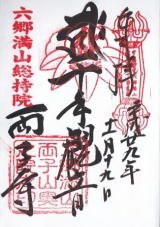 奉拝
平成廿九年
十一月十九日
千手観音
六郷満山総持院
両子寺